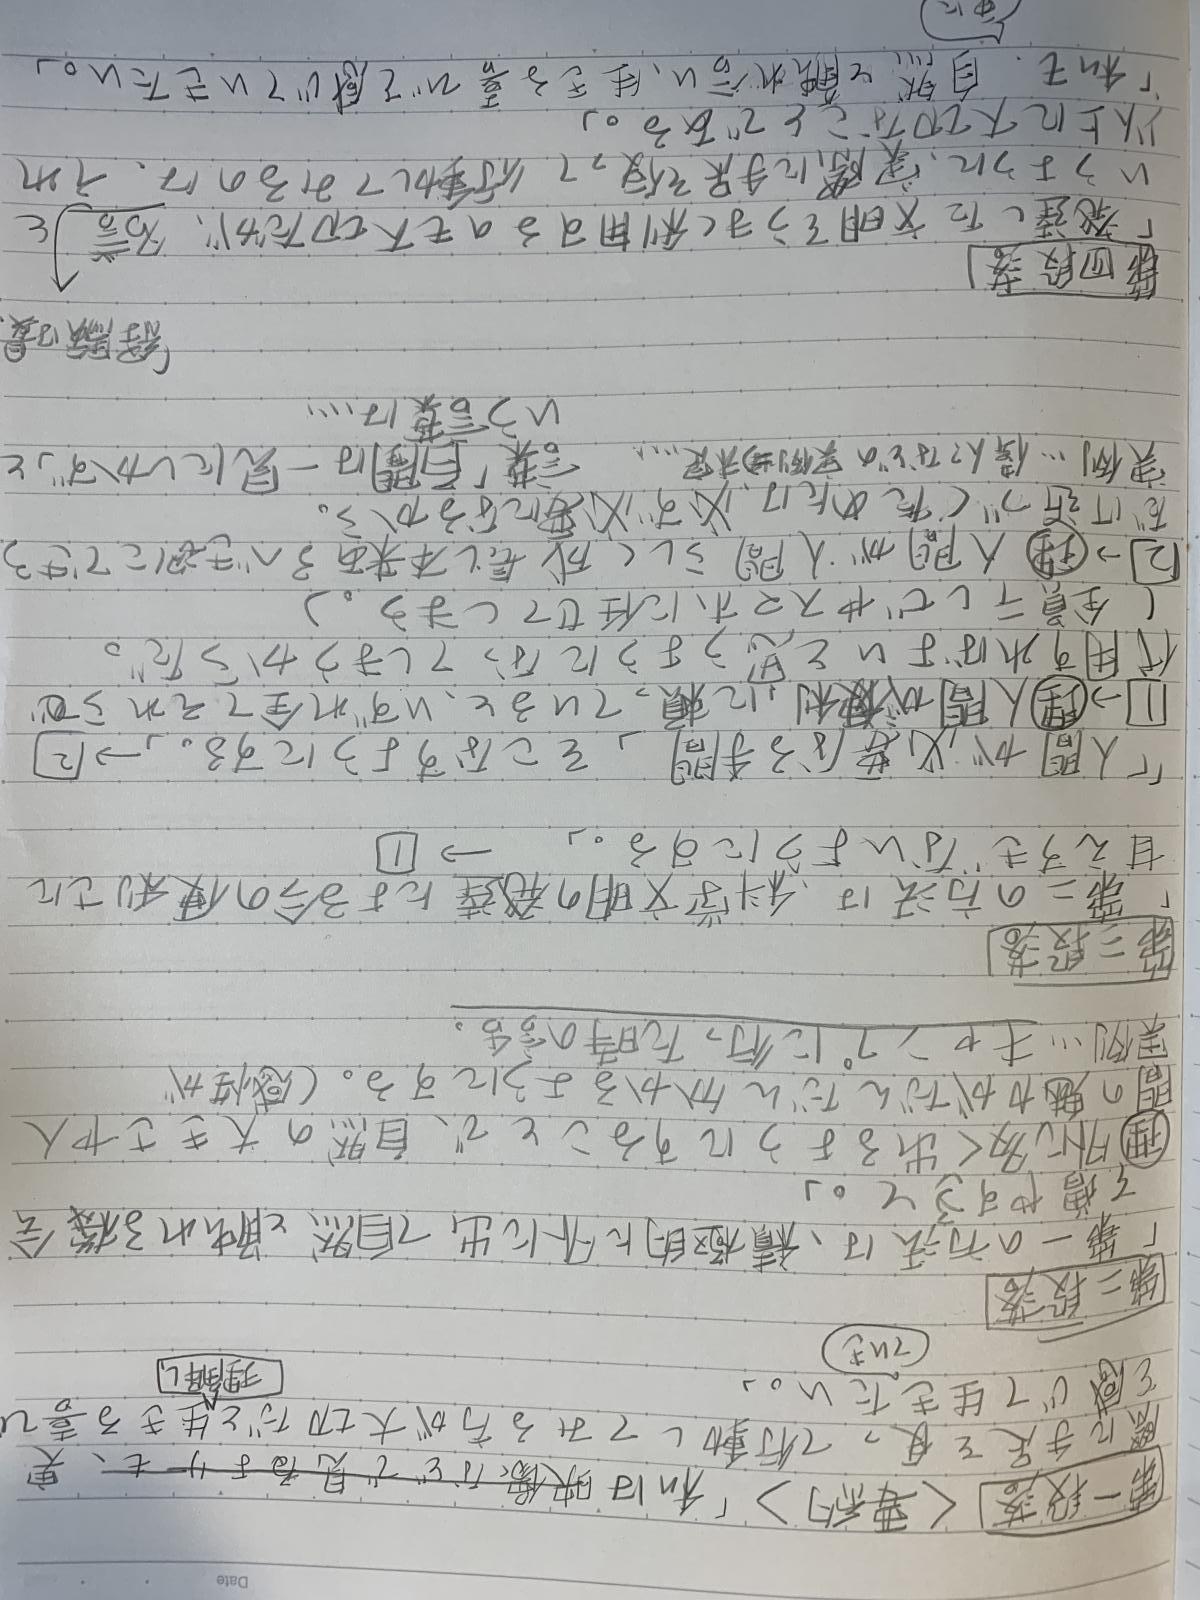 Date
第一段落 <要約>「私は映像などで見るよりも、実
際に手足を使って行動してみる方が大切だと生きる喜び
理解し
を感じて生きたい。」
ていき
第二段落
「第一の方法は、積極的に外に出て自然と触れる機会
を増やすこと。」
理 外に多く出るようにすることで、自然の大きさや人
間の魅力がだんだん分かるようにする。(感性が
実例…キャンプに行った時の
第三段落
「第二の方法は、科学文明の発達による今の便利さに
甘えすぎないようにする。」 → 1
「人間が必要なる手間」をこなすようにする。」→ 2
1→理 人間が便利に頼っていると、いずれ全てそれらで
代用すればよいと思うようになってしまうからだ。
(全員テレビやスマホに任せてしまう。」
2→理 人間が人間らしく成長し本来あるべき姿にできる
だけ近づくためには、必ず必要になるから。
実例…偉人などの実例 未定… 言葉「百聞は一見にしかず」と
いう言葉は…
(経験は最
第四段落
「発達した文明をうまく利用するのも大切だが、 名言 と
いうように、実際に手足を使って行動してみるのは、それ
以上に大切なことである。」
「私も、自然と触れ合い、生きる喜びを感じていきたい。」